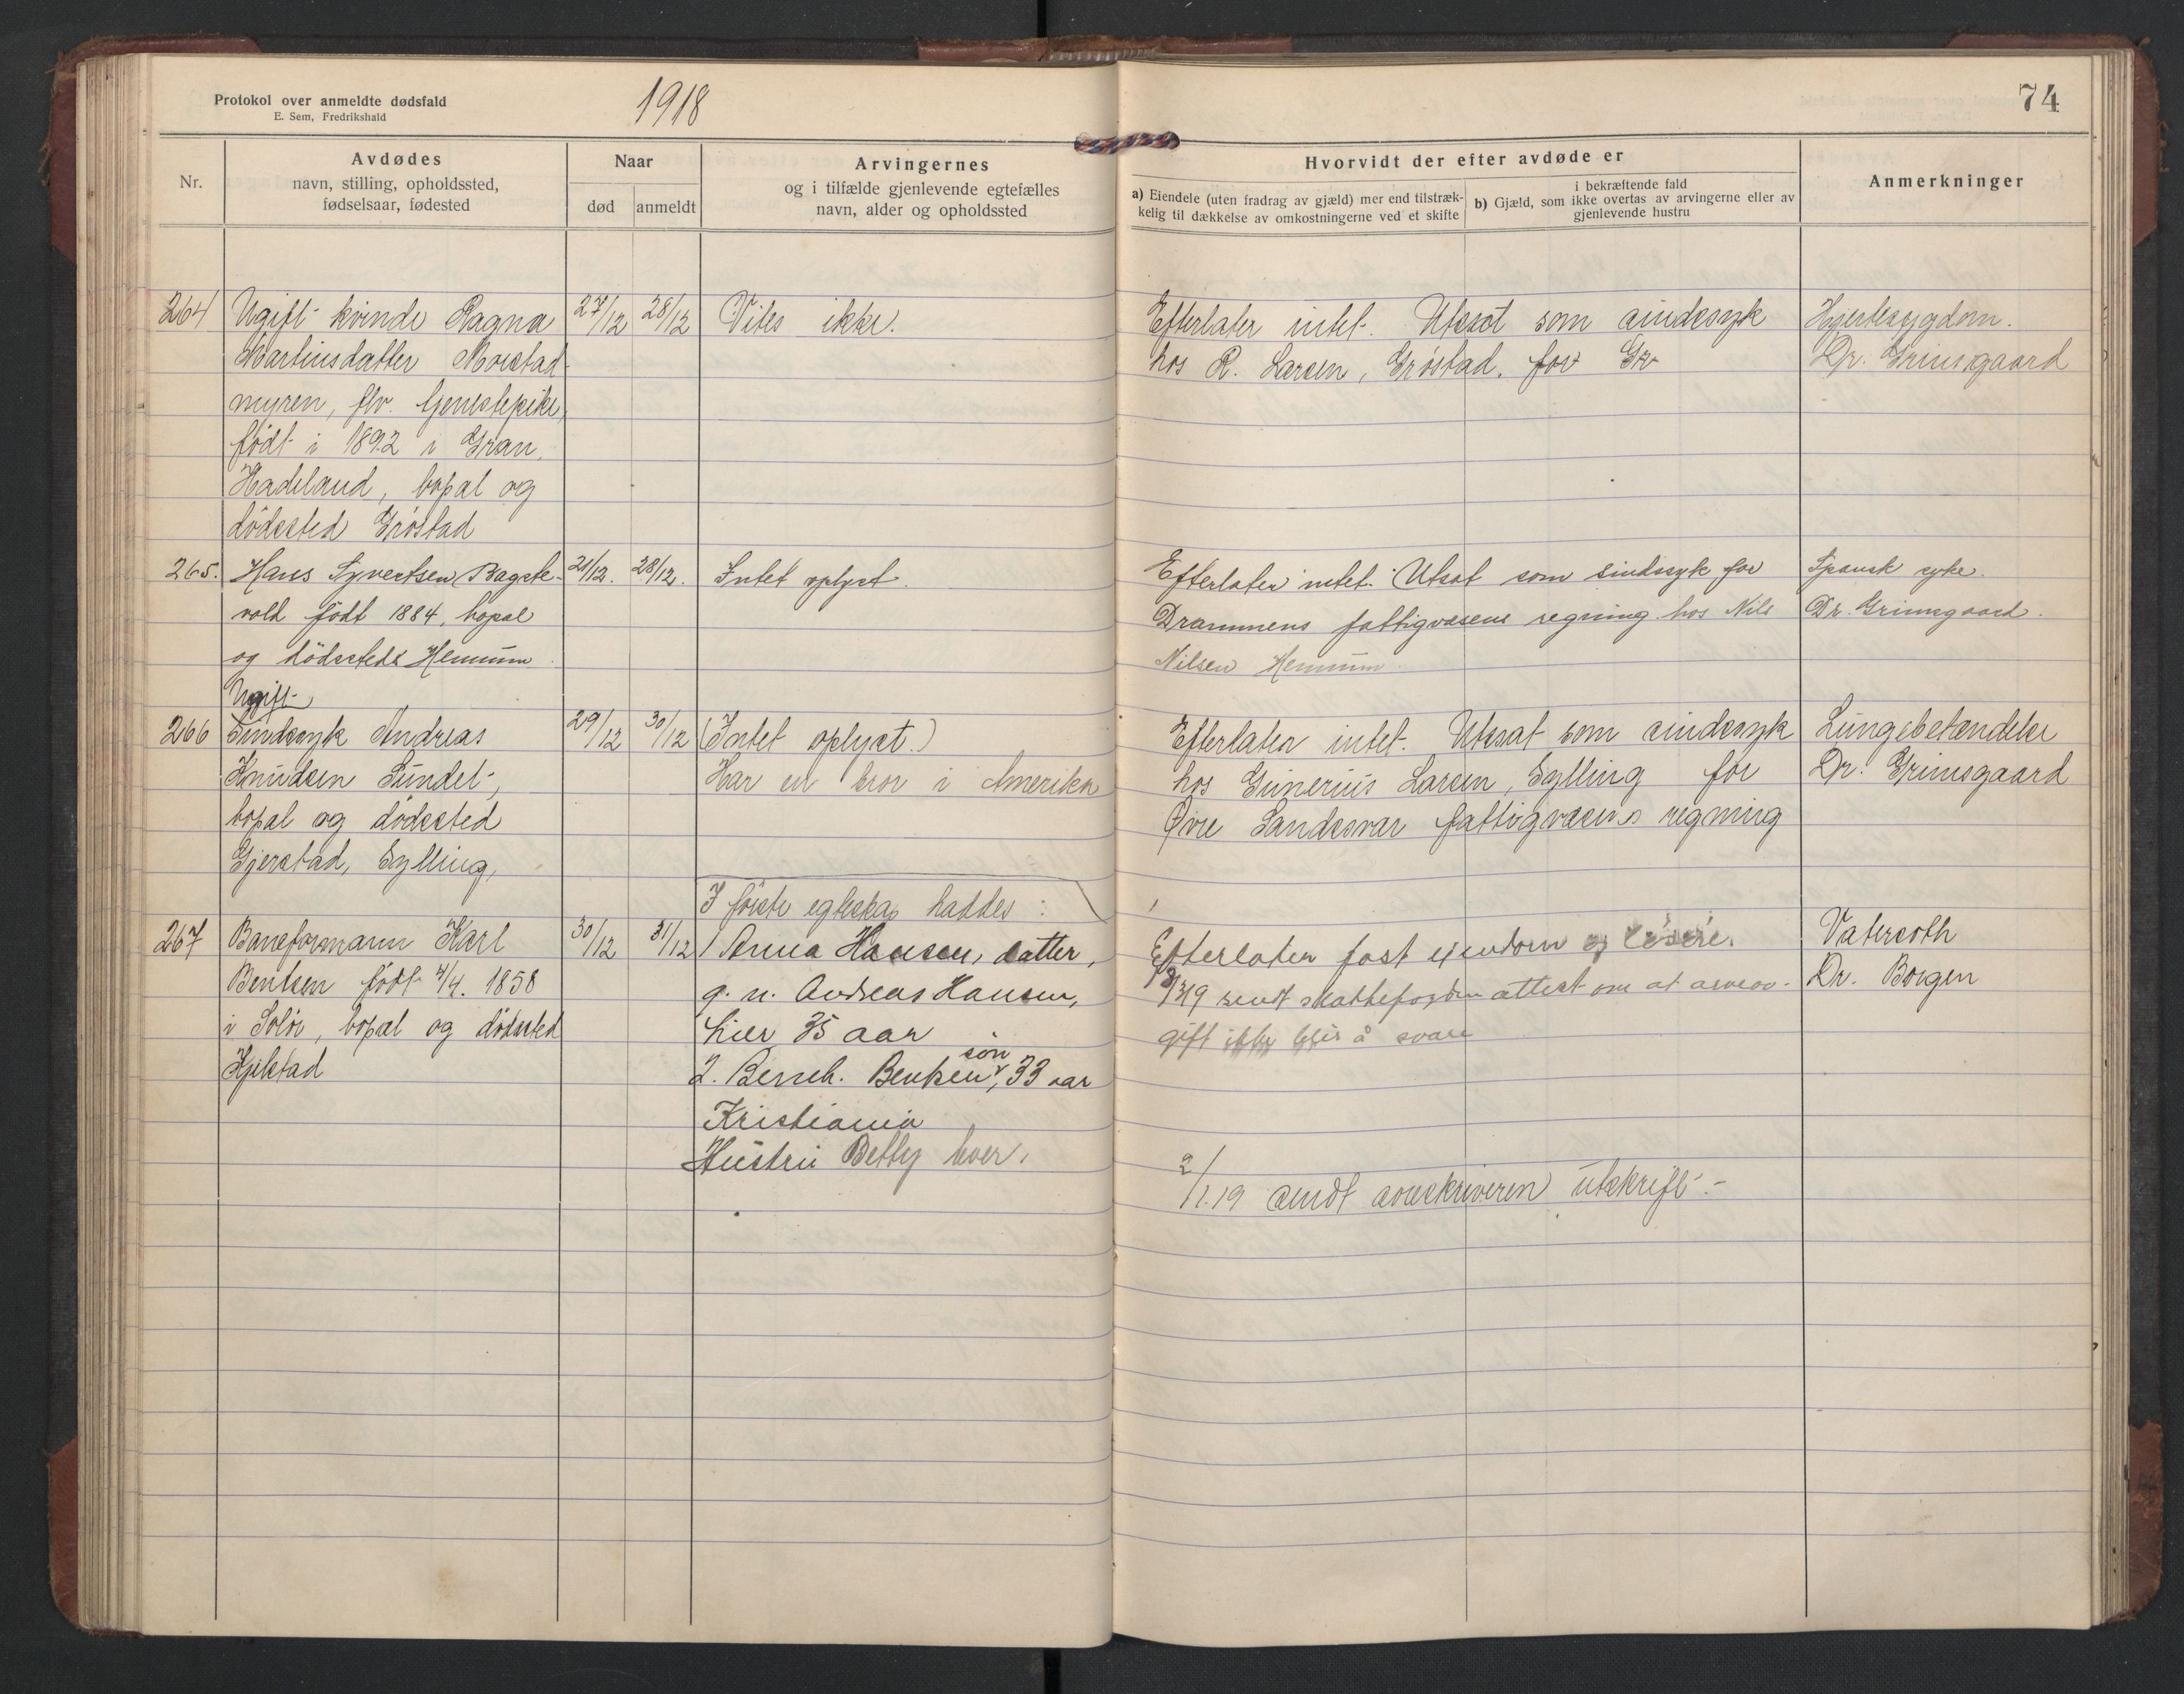 Protokol over anmeldte dødsfald
E. Sem, Fredrikshald
1918
Nr.
Avdødes
navn, stilling, opholdssted,
fødselsaar, fødested
Naar
død
anmeldt
Arvingernes
og i tilfælde gjenlevende egtefælles
navn, alder og opholdssted
264
Ugift kvinde Ragna
Martinsdatter Morstad
myren, flv. tjenestepike,
født i 1892 i Gran,
Hadeland, bopal og
dödssted Gröstad
27/12
28/12
Vites ikke.
265.
Hans Syvertsen Bagste-
vold født 1884, bopal
og dödssteds Hennum
Ugift
21/12.
28/12.
Intet oplyst.
266
Sindssyk Andreas
Knudsen Sundet,
bopal og dödssted
Gjerstad, Sylling,
29/12
30/12
(Intet oplyst.)
Har en bror i Amerika
267
Baneformann Karl
Bentsen født 4/4. 1858
i Solör, bopæl og dödssted
Kjelstad
30/12
31/12
I förste egteskap haddes:
1 Anna Hansen, datter,
g. m. Andreas Hansen,
Lier 35 aar
sön
2. Bernh. Bentsen, 33 aar
Kristiania
Hustru Betty lever.
74
Hvorvidt der efter avdøde er
a) Eiendele (uten fradrag av gjæld) mer end tilstræk-
kelig til dækkelse av omkostningerne ved et skifte
i bekræftende fald
b) Gjæld, som ikke overtas av arvingerne eller av
gjenlevende hustru
Anmerkninger
Efterlater intet. Utsat som sindssyk
hos R. Larsen, Gröstad. for Gr
Hjertesygdom.
Dr. Grimsgaard
Efterlater intet. Utsat som sindssyk for
Drammens fattigvæsens regning hos Nils
Nilsen Hennum
Spansk syke.
Dr. Grimsgaard.
Efterlater intet. Utsat som sindssyk
hos Gunerius Larsen, Sylling for
Øvre Sandsvær fattigvæsens regning
Lungebetændelse
Dr. Grimsgaard
Efterlater fast ejendom og lösöre.
sendt skattefogden attest om at arveav-
gift ikke blir å svare
Vatersoth
Dr. Borgen
2/1.19 sendt sorenskriveren utskrift.-